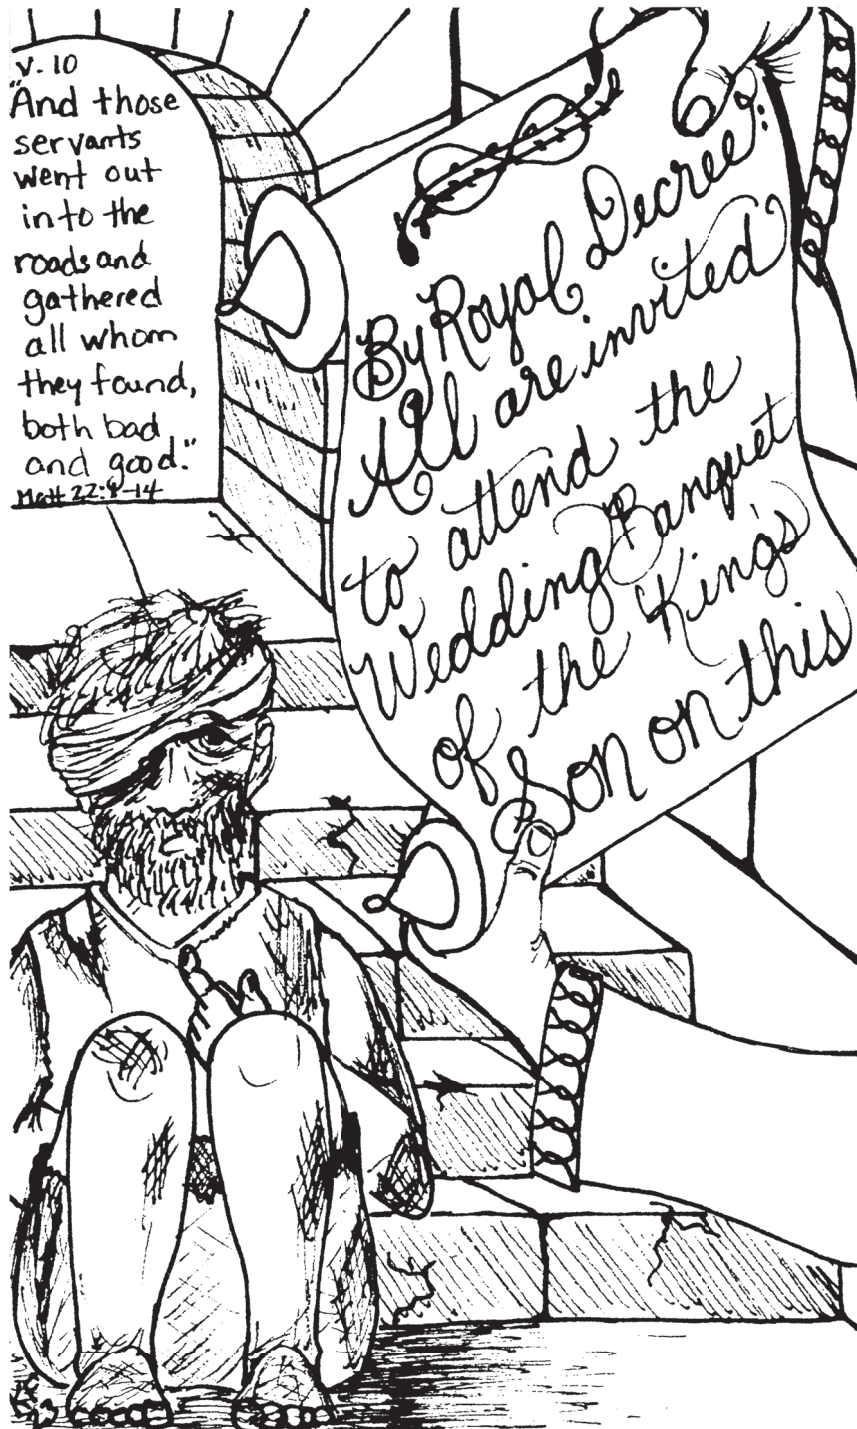 v. 10
"And those
servants
went out
into the
roads and
gathered
all whom
they found,
both bad
and good."
Matt 22:9-14
By Royal Decree:
All are invited
to attend the
Wedding Banquet
of the King's
Son on this